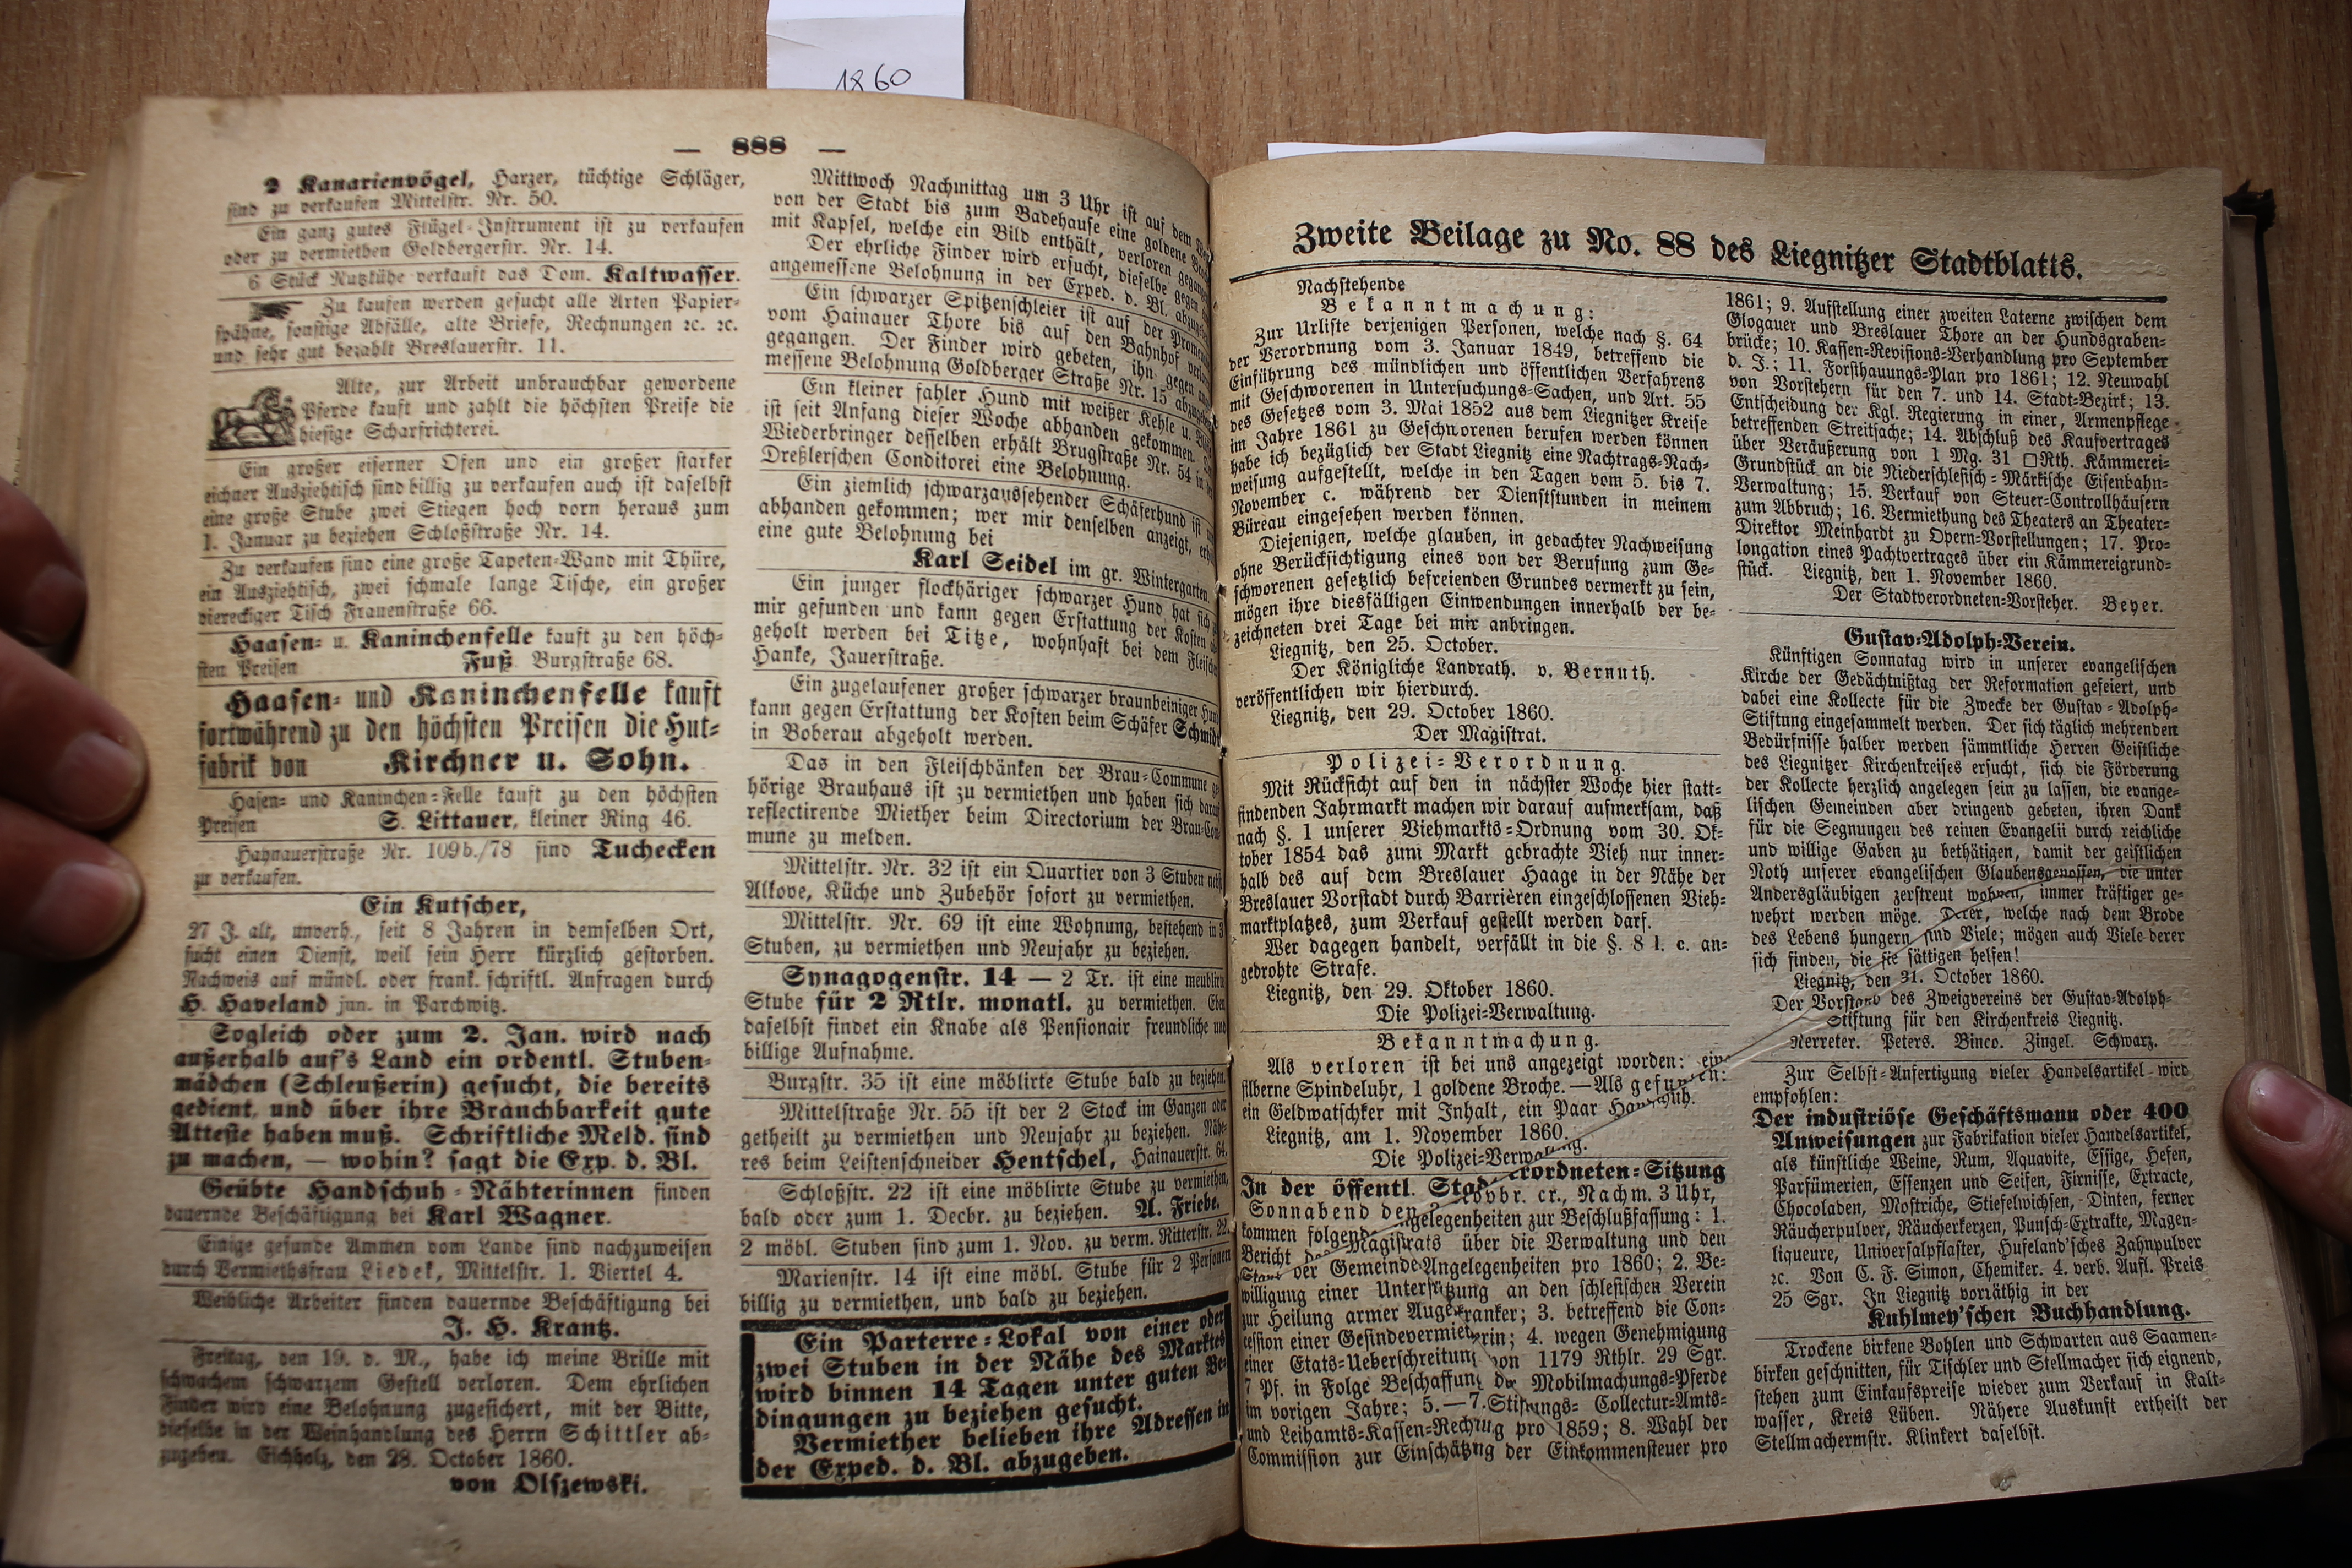 1860
— 888 —
2 Kanarienvögel, Harzer, tüchtige Schläger,
sind zu verkaufen Mittelstr. Nr. 50.
Ein ganz gutes Flügel-Instrument ist zu verkaufen
oder zu vermiethen Goldbergerstr. Nr. 14.
6 Stück Nutzkühe verkauft das Dom. Kaltwasser.
Zu kaufen werden gesucht alle Arten Papier-
spähne, sonstige Abfälle, alte Briefe, Rechnungen ꝛc. ꝛc.
und sehr gut bezahlt Breslauerstr. 11.
Alte, zur Arbeit unbrauchbar gewordene
Pferde kauft und zahlt die höchsten Preise die
hiesige Scharfrichterei.
Ein großer eiserner Ofen und ein großer starker
eichner Ausziehtisch sind billig zu verkaufen auch ist daselbst
eine große Stube zwei Stiegen hoch vorn heraus zum
1. Januar zu beziehen Schloßstraße Nr. 14.
Zu verkaufen sind eine große Tapeten-Wand mit Thüre,
ein Ausziehtisch, zwei schmale lange Tische, ein großer
viereckiger Tisch Frauenstraße 66.
Haasen- u. Kaninchenfelle kauft zu den höch-
sten Preisen Fuß Burgstraße 68.
Haasen- und Kaninchenfelle kauft
fortwährend zu den höchsten Preisen die Hut-
fabrik von Kirchner u. Sohn.
Hasen- und Kaninchen-Felle kauft zu den höchsten
Preisen S. Littauer, kleiner Ring 46.
Haynauerstraße Nr. 109b./78 sind Tuchecken
zu verkaufen.
Ein Kutscher,
27 J. alt, unverh., seit 8 Jahren in demselben Ort,
sucht einen Dienst, weil sein Herr kürzlich gestorben.
Nachweis auf mündl. oder frank. schriftl. Anfragen durch
H. Haveland jun. in Parchwitz.
Sogleich oder zum 2. Jan. wird nach
außerhalb auf's Land ein ordentl. Stuben-
mädchen (Schleußerin) gesucht, die bereits
gedient und über ihre Brauchbarkeit gute
Atteste haben muß. Schriftliche Meld. sind
zu machen, — wohin? sagt die Exp. d. Bl.
Geübte Handschuh-Nähterinnen finden
dauernde Beschäftigung bei Karl Wagner.
Einige gesunde Ammen vom Lande sind nachzuweisen
durch Vermiethsfrau Liedek, Mittelstr. 1. Viertel 4.
Weibliche Arbeiter finden dauernde Beschäftigung bei
J. H. Krantz.
Freitag, den 19. d. M., habe ich meine Brille mit
schwachem schwarzem Gestell verloren. Dem ehrlichen
Finder wird eine Belohnung zugesichert, mit der Bitte,
dieselbe in der Weinhandlung des Herrn Schittler ab-
zugeben. Eichholz, den 28. October 1860.
von Olszewski.
Mittwoch Nachmittag um 3 Uhr ist auf dem
von der Stadt bis zum Badehause eine goldene
mit Kapsel, welche ein Bild enthält, verloren gegangen.
Der ehrliche Finder wird ersucht, dieselbe gegen
angemessene Belohnung in der Exped. d. Bl. abzugeben.
Ein schwarzer Spitzenschleier ist auf der Promenade
vom Hainauer Thore bis auf den Bahnhof verloren
gegangen. Der Finder wird gebeten, ihn gegen
messene Belohnung Goldberger Straße Nr. 15 abzugeben.
Ein kleiner fahler Hund mit weißer Kehle u.
ist seit Anfang dieser Woche abhanden gekommen.
Wiederbringer desselben erhält Brugstraße Nr. 54 in der
Dreßlerschen Conditorei eine Belohnung.
Ein ziemlich schwarzaussehender Schäferhund ist
abhanden gekommen; wer mir denselben anzeigt, erhält
eine gute Belohnung bei
Karl Seidel im gr. Wintergarten.
Ein junger flockhäriger schwarzer Hund hat sich
mir gefunden und kann gegen Erstattung der Kosten
geholt werden bei Titze, wohnhaft bei dem Fleischer
Hanke, Jauerstraße.
Ein zugelaufener großer schwarzer braunbeiniger Hund
kann gegen Erstattung der Kosten beim Schäfer Schmidt
in Boberau abgeholt werden.
Das in den Fleischbänken der Brau-Commune ge-
hörige Brauhaus ist zu vermiethen und haben sich darauf
reflectirende Miether beim Directorium der Brau-Com-
mune zu melden.
Mittelstr. Nr. 32 ist ein Quartier von 3 Stuben nebst
Alkove, Küche und Zubehör sofort zu vermiethen.
Mittelstr. Nr. 69 ist eine Wohnung, bestehend in 3
Stuben, zu vermiethen und Neujahr zu beziehen.
Synagogenstr. 14 — 2 Tr. ist eine meublirte
Stube für 2 Rtlr. monatl. zu vermiethen. Eben
daselbst findet ein Knabe als Pensionair freundliche und
billige Aufnahme.
Burgstr. 35 ist eine möblirte Stube bald zu beziehen.
Mittelstraße Nr. 55 ist der 2 Stock im Ganzen oder
getheilt zu vermiethen und Neujahr zu beziehen. Nähe-
res beim Leistenschneider Hentschel, Hainauerstr. 64.
Schloßstr. 22 ist eine möblirte Stube zu vermiethen,
bald oder zum 1. Decbr. zu beziehen. A. Friebe.
2 möbl. Stuben sind zum 1. Nov. zu verm. Ritterstr. 22.
Marienstr. 14 ist eine möbl. Stube für 2 Personen
billig zu vermiethen, und bald zu beziehen.
Ein Parterre-Lokal von einer oder
zwei Stuben in der Nähe des Marktes
wird binnen 14 Tagen unter guten Be-
dingungen zu beziehen gesucht.
Vermiether belieben ihre Adressen in
der Exped. d. Bl. abzugeben.
Zweite Beilage zu No. 88 des Liegnitzer Stadtblatts.
Nachstehende
Bekanntmachung:
Zur Urliste derjenigen Personen, welche nach §. 64
der Verordnung vom 3. Januar 1849, betreffend die
Einführung des mündlichen und öffentlichen Verfahrens
mit Geschworenen in Untersuchungs-Sachen, und Art. 55
des Gesetzes vom 3. Mai 1852 aus dem Liegnitzer Kreise
im Jahre 1861 zu Geschworenen berufen werden können
habe ich bezüglich der Stadt Liegnitz eine Nachtrags-Nach-
weisung aufgestellt, welche in den Tagen vom 5. bis 7.
November c. während der Dienststunden in meinem
Büreau eingesehen werden können.
Diejenigen, welche glauben, in gedachter Nachweisung
ohne Berücksichtigung eines von der Berufung zum Ge-
schworenen gesetzlich befreienden Grundes vermerkt zu sein,
mögen ihre diesfälligen Einwendungen innerhalb der be-
zeichneten drei Tage bei mir anbringen.
Liegnitz, den 25. October.
Der Königliche Landrath. v. Bernuth.
veröffentlichen wir hierdurch.
Liegnitz, den 29. October 1860.
Der Magistrat.
Polizei-Verordnung.
Mit Rücksicht auf den in nächster Woche hier statt-
findenden Jahrmarkt machen wir darauf aufmerksam, daß
nach §. 1 unserer Viehmarkts-Ordnung vom 30. Ok-
tober 1854 das zum Markt gebrachte Vieh nur inner-
halb des auf dem Breslauer Haage in der Nähe der
Breslauer Vorstadt durch Barrièren eingeschlossenen Vieh-
marktplatzes, zum Verkauf gestellt werden darf.
Wer dagegen handelt, verfällt in die §. 8 l. c. an-
gedrohte Strafe.
Liegnitz, den 29. Oktober 1860.
Die Polizei-Verwaltung.
Bekanntmachung.
Als verloren ist bei uns angezeigt worden: eine
silberne Spindeluhr, 1 goldene Broche. — Als gefunden:
ein Geldwatschker mit Inhalt, ein Paar Handschuh.
Liegnitz, am 1. November 1860.
Die Polizei-Verwaltung.
In der öffentl. Stadtverordneten-Sitzung
Sonnabend den Novbr. cr., Nachm. 3 Uhr,
kommen folgende Angelegenheiten zur Beschlußfassung: 1.
Bericht des Magistrats über die Verwaltung und den
Stand der Gemeinde-Angelegenheiten pro 1860; 2. Be-
willigung einer Unterstützung an den schlesischen Verein
zur Heilung armer Augenkranker; 3. betreffend die Con-
cession einer Gesindevermietherin; 4. wegen Genehmigung
einer Etats-Ueberschreitung von 1179 Rthlr. 29 Sgr.
7 Pf. in Folge Beschaffung der Mobilmachungs-Pferde
im vorigen Jahre; 5.—7. Stiftungs- Collectur-Amts-
und Leihamts-Kassen-Rechnug pro 1859; 8. Wahl der
Commission zur Einschätzng der Einkommensteuer pro
1861; 9. Aufstellung einer zweiten Laterne zwischen dem
Glogauer und Breslauer Thore an der Hundsgraben-
brücke; 10. Kassen-Revisions-Verhandlung pro September
d. J.; 11. Forsthauungs-Plan pro 1861; 12. Neuwahl
von Vorstehern für den 7. und 14. Stadt-Bezirk; 13.
Entscheidung der Kgl. Regierung in einer, Armenpflege
betreffenden Streitsache; 14. Abschluß des Kaufvertrages
über Veräußerung von 1 Mg. 31 □Rth. Kämmerei-
Grundstück an die Niederschlesisch-Märkische Eisenbahn-
Verwaltung; 15. Verkauf von Steuer-Controllhäusern
zum Abbruch; 16. Vermiethung des Theaters an Theater-
Direktor Meinhardt zu Opern-Vorstellungen; 17. Pro-
longation eines Pachtvertrages über ein Kämmereigrund-
stück. Liegnitz, den 1. November 1860.
Der Stadtverordneten-Vorsteher. Beyer.
Gustav-Adolph-Verein.
Künftigen Sonnatag wird in unserer evangelischen
Kirche der Gedächtnißtag der Reformation gefeiert, und
dabei eine Kollecte für die Zwecke der Gustav-Adolph-
Stiftung eingesammelt werden. Der sich täglich mehrenden
Bedürfnisse halber werden sämmtliche Herren Geistliche
des Liegnitzer Kirchenkreises ersucht, sich die Förderung
der Kollecte herzlich angelegen sein zu lassen, die evange-
lischen Gemeinden aber dringend gebeten, ihren Dank
für die Segnungen des reinen Evangelii durch reichliche
und willige Gaben zu bethätigen, damit der geistlichen
Noth unserer evangelischen Glaubensgenossen, die unter
Andersgläubigen zerstreut wohnen, immer kräftiger ge-
wehrt werden möge. Derer, welche nach dem Brode
des Lebens hungern sind Viele; mögen auch Viele derer
sich finden, die sie sättigen helfen!
Liegnitz, den 31. October 1860.
Der Vorstand des Zweigvereins der Gustav-Adolph-
Stiftung für den Kirchenkreis Liegnitz.
Nerreter. Peters. Binco. Zingel. Schwarz.
Zur Selbst-Anfertigung vieler Handelsartikel wird
empfohlen:
Der industriöse Geschäftsmann oder 400
Anweisungen zur Fabrikation vieler Handelsartikel,
als künstliche Weine, Rum, Aquavite, Essige, Hefen,
Parfümerien, Essenzen und Seifen, Firnisse, Extracte,
Chocoladen, Mostriche, Stiefelwichsen, Dinten, ferner
Räucherpulver, Räucherkerzen, Punsch-Extrakte, Magen-
liqueure, Universalpflaster, Hufeland'sches Zahnpulver
ꝛc. Von C. F. Simon, Chemiker. 4. verb. Aufl. Preis
25 Sgr. In Liegnitz vorräthig in der
Kuhlmey'schen Buchhandlung.
Trockene birkene Bohlen und Schwarten aus Saamen-
birken geschnitten, für Tischler und Stellmacher sich eignend,
stehen zum Einkaufspreise wieder zum Verkauf in Kalt-
wasser, Kreis Lüben. Nähere Auskunft ertheilt der
Stellmachermstr. Klinkert daselbst.